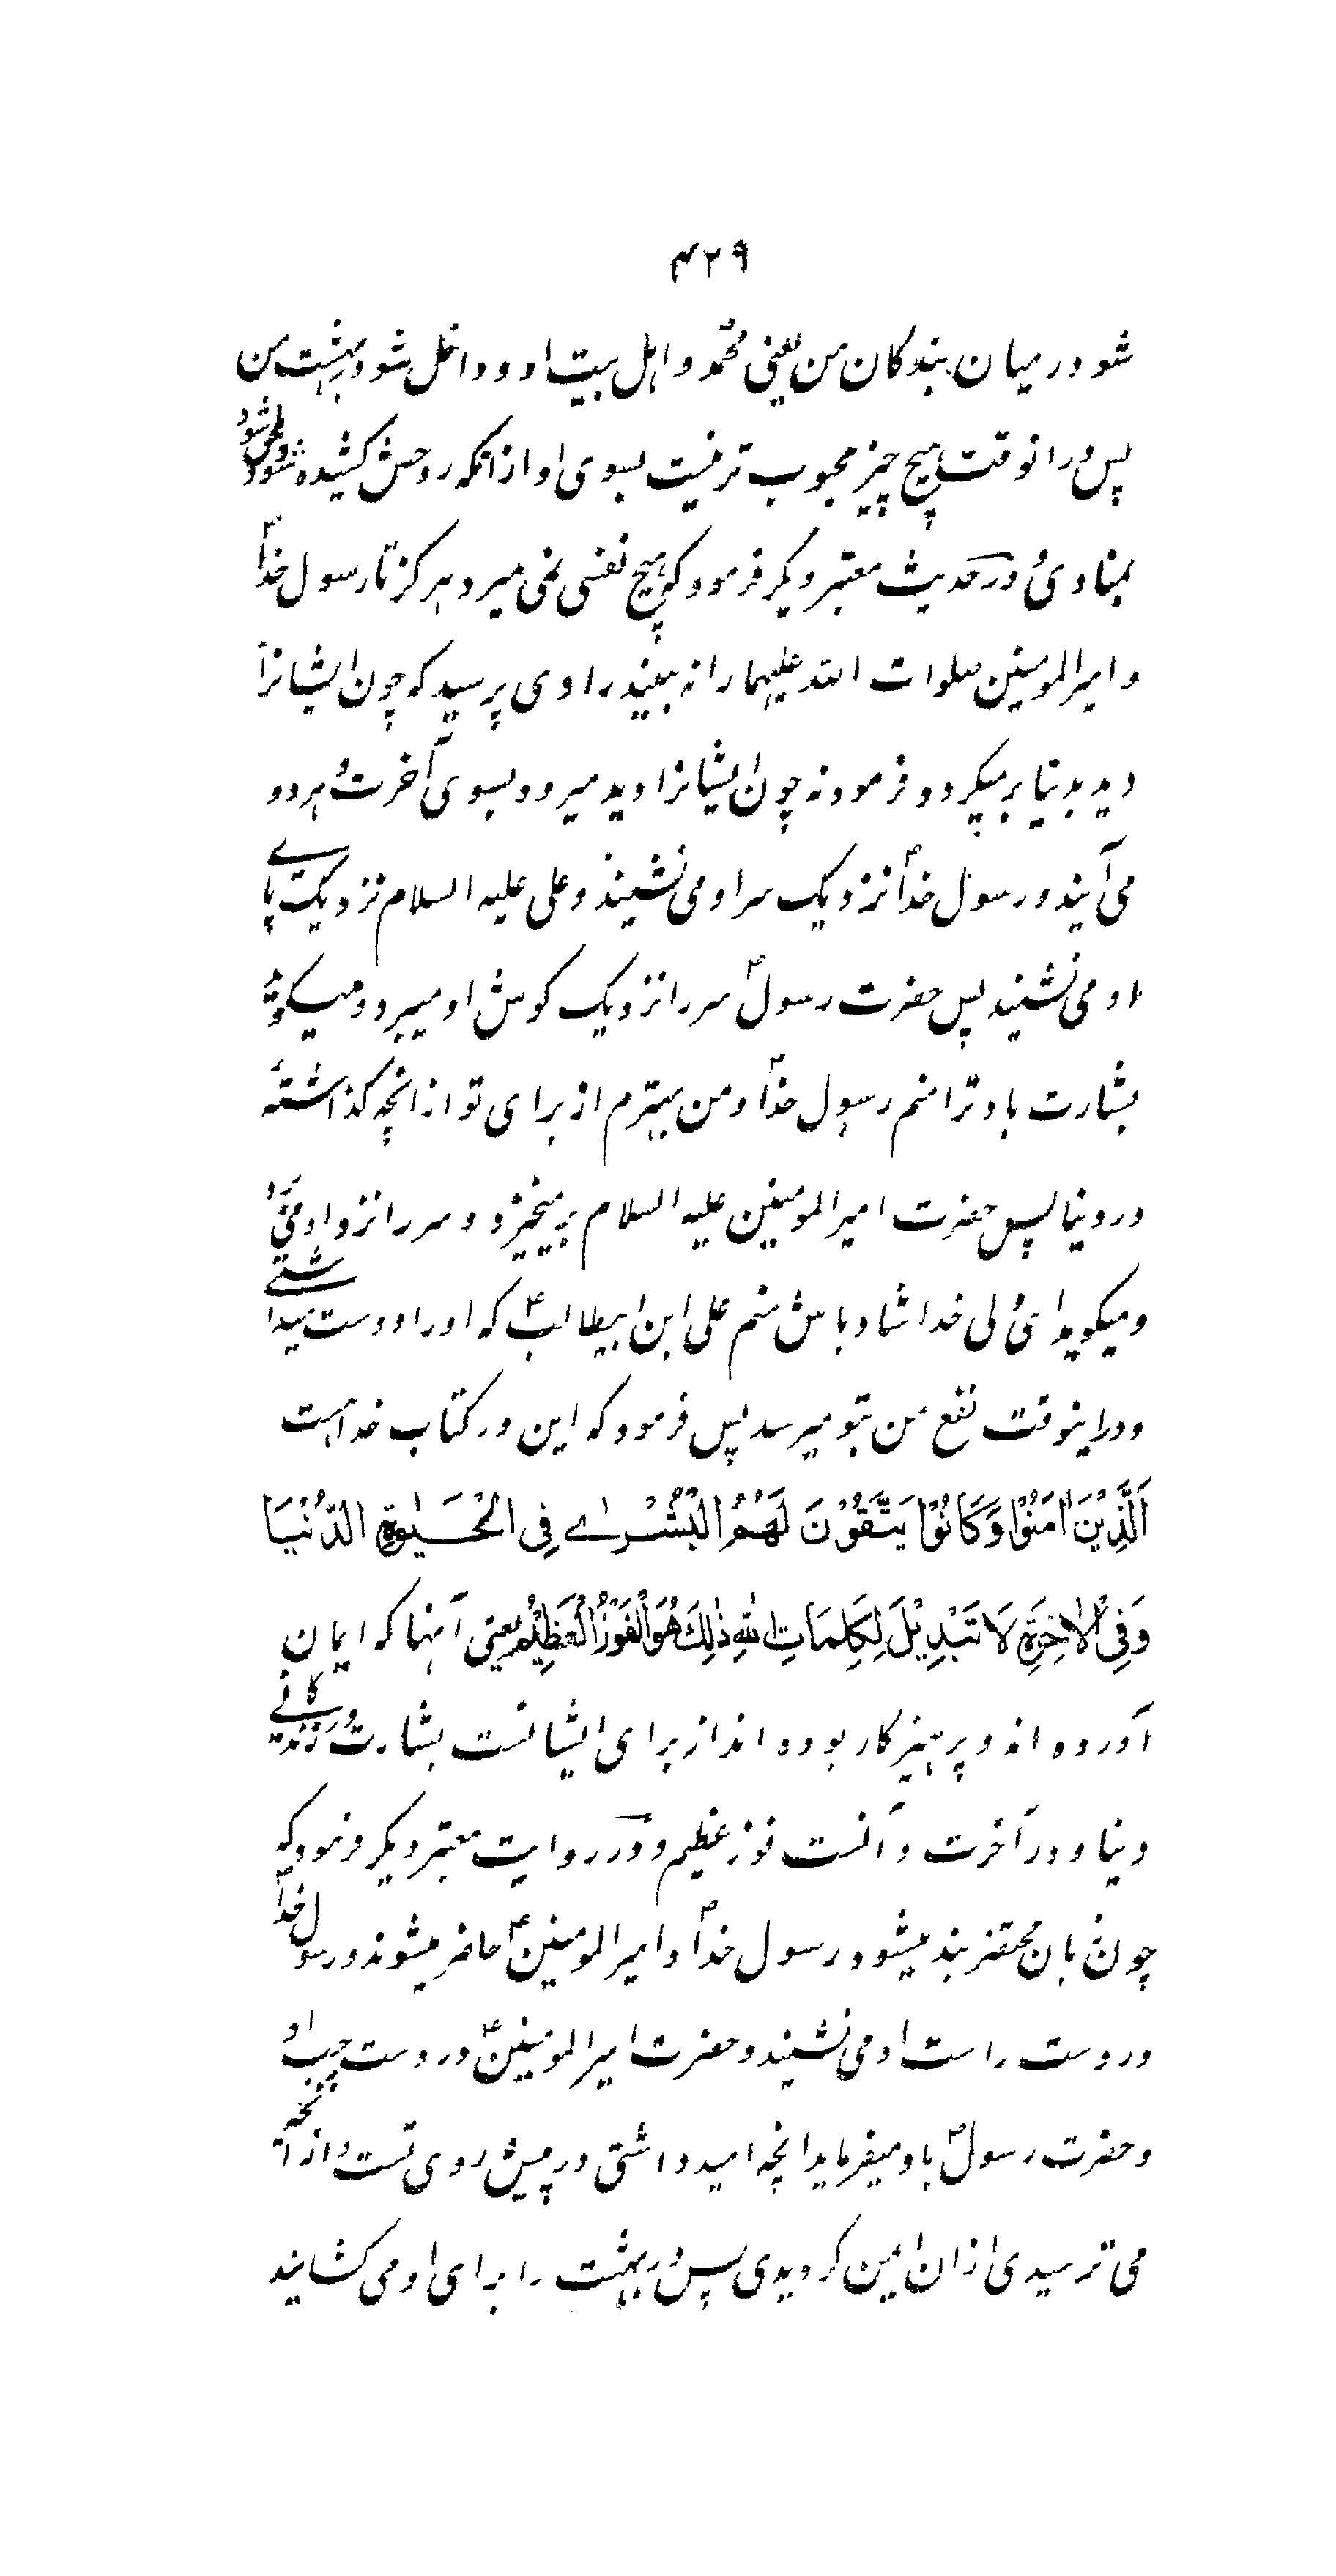 ۴۲۹
شو در میان بندکان من یعنی محمّد و اهل بیت او و داخل شو در بهشت من
پس در انوقت هیچ چیز محبوب تر نیست بسوی او از انکه روحش کشیده شود و ملحق شود
بمنادی و در حدیث معتبر دیکر فرمود که هیچ نفسی نمی میرد هرکز تا رسول خداؐ
و امیر المومنین صلوات الله علیهما را نه بیند راوی پرسید که چون ایشانرا
دید بدنیا برمیکردد فرمود نه چون ایشانرا دید میرود بسوی آخرت و هردو
می آیند و رسول خداؐ نزدیک سر او می نشیند و علی علیه السلام نزدیک پاے
او می نشیند پس حضرت رسولؐ سر را نزدیک کوش او میبرد و میکوید
بشارت باد ترا منم رسول خداؐ و من بهترم از برای تو از انچه کذاشتهٔ
در دنیا پس حضرت امیر المومنین علیه السلام برمیخیزد و سر را نزد او می
و میکوید ای ولی خدا شاد باش منم علی ابن ابیطالبؑ که او را دوست میداشتے
و در اینوقت نفع من بتو میرسد پس فرمود که این در کتاب خداست
اَلَّذِيْنَ اٰمَنُوْا وَكَانُوْا يَتَّقُوْنَ لَهُمُ الْبُشْرٰے فِی الْحَيٰوةِ الدُّنْيَا
وَفِی الْاٰخِرَةِ لَا تَبْدِيْلَ لِكَلِمَاتِ اللهِ ذٰلِكَ هُوَ الْفَوْزُ الْعَظِيْمُ یعنی آنها که ایمان
آورده اند و پرهیزکار بوده اند از برای ایشانست بشارت در زندکانے
دنیا و در آخرت و آنست فوز عظیم و در روایت معتبر دیکر فرمود که
چون زبان محتضر بند میشود رسول خداؐ و امیر المومنینؑ حاضر میشوند و رسول خداؐ
در دست راست او می نشیند و حضرت امیر المومنینؑ در دست چپ او
و حضرت رسولؐ باو میفرماید انچه امید داشتی در پیش روی تست و از آنچه
می ترسیدی از ان ایمن کردیدی پس در بهشت را برای او می کشایند